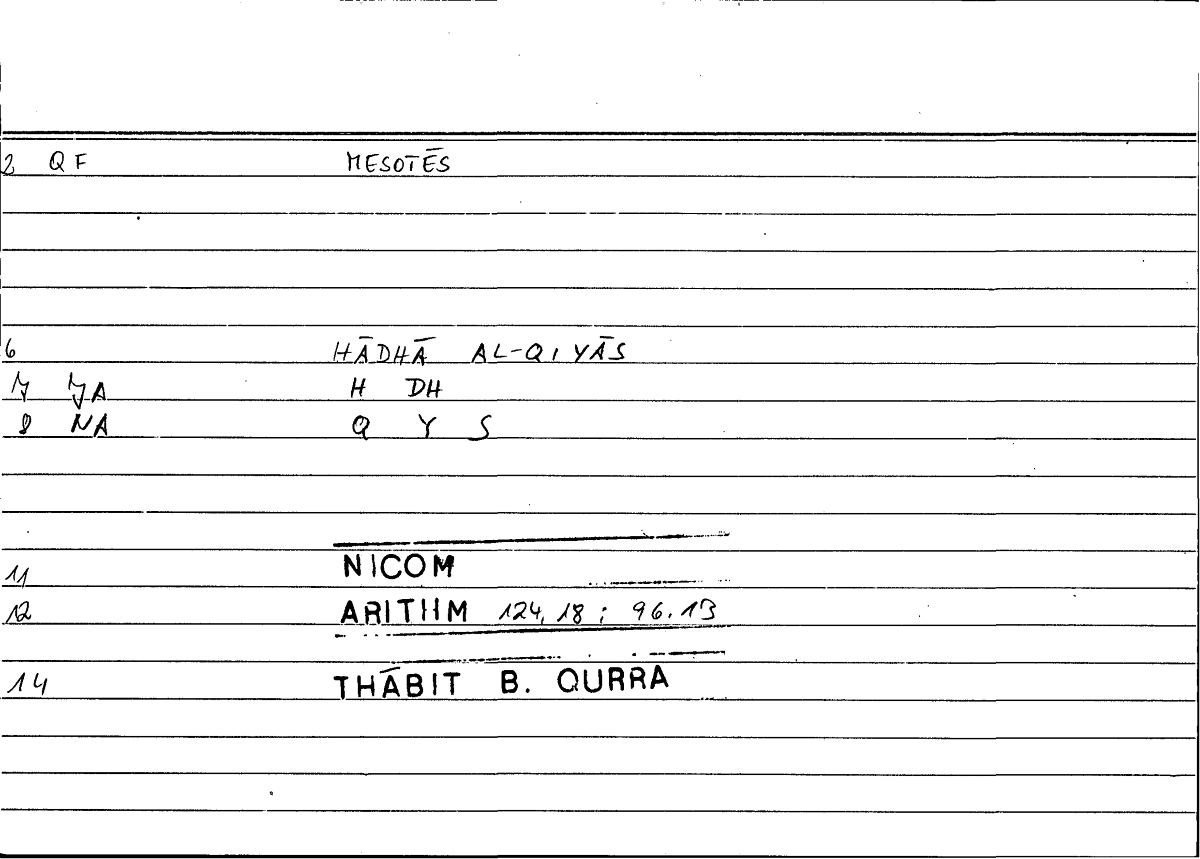 2 QF MESOTĒS
6 HĀDHĀ AL-QIYĀS
7 JA H DH
8 NA Q Y S
11 NICOM
12 ARITHM 124,18; 96.13
14 THĀBIT B. QURRA